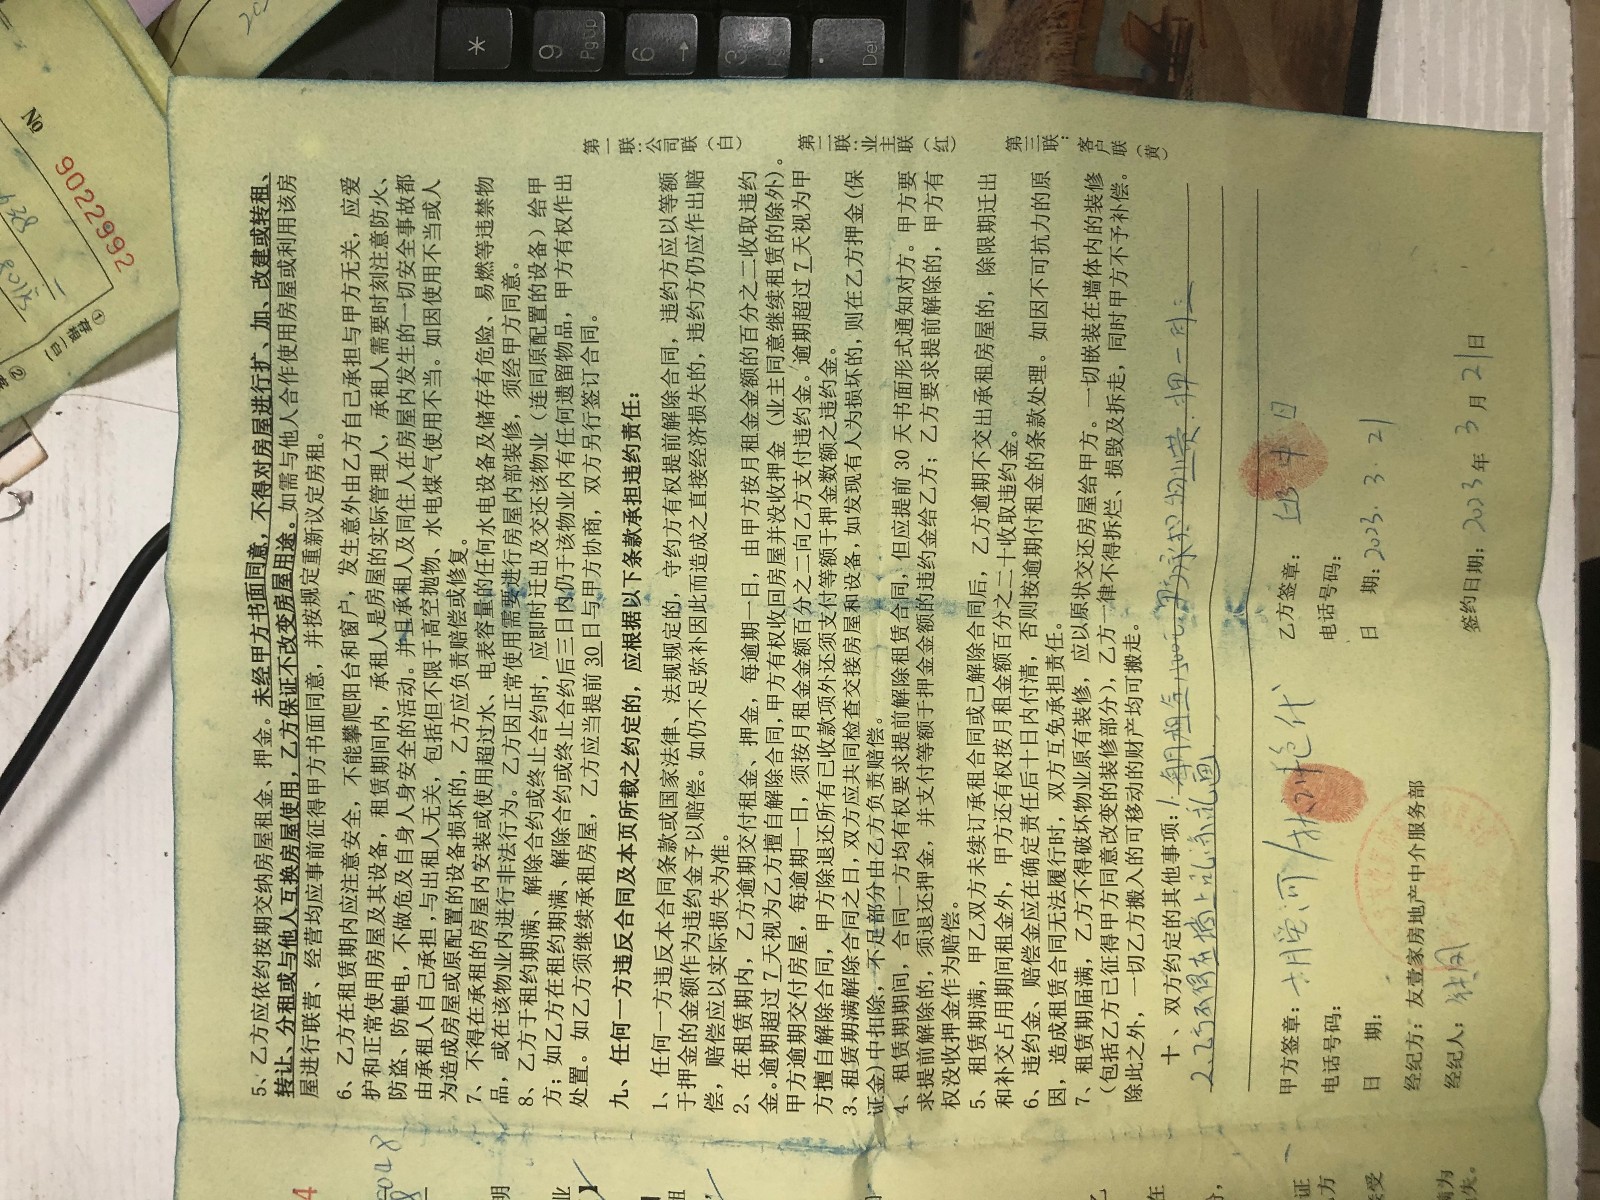 5、乙方应依约按期交纳房屋租金、押金。未经甲方书面同意，不得对房屋进行扩、加、改建或转租、
转让、分租或与他人互换房屋使用，乙方保证不改变房屋用途。如需与他人合作使用房屋或利用该房
屋进行联营、经营均应事前征得甲方书面同意，并按规定重新议定房租。
6、乙方在租赁期内应注意安全，不能攀爬阳台和窗户，发生意外由乙方自己承担与甲方无关，应爱
护和正常使用房屋及其设备，租赁期间内，承租人是房屋的实际管理人，承租人需要时刻注意防火、
防盗、防触电，不做危及自身人身安全的活动。并且承租人及同住人在房屋内发生的一切安全事故都
由承租人自己承担，与出租人无关，包括但不限于高空抛物、水电煤气使用不当。如因使用不当或人
为造成房屋或原配置的设备损坏的，乙方应负责赔偿或修复。
7、不得在承租的房屋内安装或使用超过水、电表容量的任何水电设备及储存有危险、易燃等违禁物
品，或在该物业内进行非法行为。乙方因正常使用需要进行房屋内部装修，须经甲方同意。
8、乙方于租约期满、解除合约或终止合约时，应即时迁出及交还该物业（连同原配置的设备）给甲
方；如乙方在租约期满、解除合约或终止合约后三日内仍于该物业内有任何遗留物品，甲方有权作出
处置。如乙方须继续承租房屋，乙方应当提前 30 日与甲方协商，双方另行签订合同。
九、任何一方违反合同及本页所载之约定的，应根据以下条款承担违约责任：
1、任何一方违反本合同条款或国家法律、法规规定的，守约方有权提前解除合同，违约方应以等额
于押金的金额作为违约金予以赔偿。如仍不足弥补因此而造成之直接经济损失的，违约方仍应作出赔
偿，赔偿应以实际损失为准。
2、在租赁期内，乙方逾期交付租金、押金，每逾期一日，由甲方按月租金金额的百分之二收取违约
金。逾期超过 7 天视为乙方擅自解除合同，甲方有权收回房屋并没收押金（业主同意继续租赁的除外）。
甲方逾期交付房屋，每逾期一日，须按月租金金额百分之二向乙方支付违约金。逾期超过 7 天视为甲
方擅自解除合同，甲方除退还所有已收款项外还须支付等额于押金数额之违约金。
3、租赁期满解除合同之日，双方应共同检查交接房屋和设备，如发现有人为损坏的，则在乙方押金（保
证金）中扣除，不足部分由乙方负责赔偿。
4、租赁期期间，合同一方均有权要求提前解除租赁合同，但应提前 30 天书面形式通知对方。甲方要
求提前解除的，须退还押金，并支付等额于押金金额的违约金给乙方；乙方要求提前解除的，甲方有
权没收押金作为赔偿。
5、租赁期满，甲乙双方未续订承租合同或已解除合同后，乙方逾期不交出承租房屋的，除限期迁出
和补交占用期间租金外，甲方还有权按月租金额百分之二十收取违约金。
6、违约金、赔偿金应在确定责任后十日内付清，否则按逾期付租金的条款处理。如因不可抗力的原
因，造成租赁合同无法履行时，双方互免承担责任。
7、租赁期届满，乙方不得破坏物业原有装修，应以原状交还房屋给甲方。一切嵌装在墙体内的装修
（包括乙方已征得甲方同意改变的装修部分），乙方一律不得拆烂、损毁及拆走，同时甲方不予补偿。
除此之外，一切乙方搬入的可移动的财产均可搬走。
十、双方约定的其他事项：1.每月租金1500元
押一付二
2.乙方不得在墙上乱涂乱画
甲方签章：
乙方签章：
电话号码：
电话号码：
日 期：
日 期：2023.3.21
经纪方：友壹家房地产中介服务部
经纪人：
签约日期：2023年 3月 21日
第一联：公司联（白）
第二联：业主联（红）
第三联：客户联（黄）
№
9022992
*
9
PgUp
6
→
3
.
Del